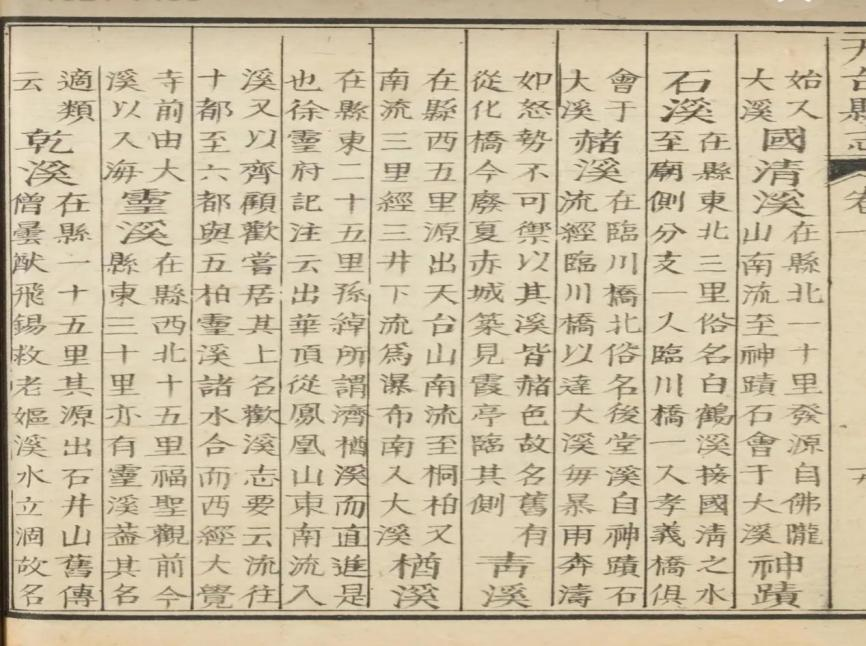 天台縣志 卷一
始入
大溪
國清溪
在縣北一十里發源自佛隴
山南流至神蹟石會于大溪
神蹟
石溪
在縣東北三里俗名白鶴溪接國清之水
至廟側分支一入臨川橋一入孝義橋俱
會于
大溪
赭溪
在臨川橋北俗名後堂溪自神蹟石
流經臨川橋以達大溪每暴雨奔濤
如怒勢不可禦以其溪皆赭色故名舊有
從化橋今廢夏赤城築見霞亭臨其側
青溪
在縣西五里源出天台山南流至桐柏又
南流三里經三井下流爲瀑布南入大溪
楢溪
在縣東二十五里孫綽所謂濟楢溪而直進是
也徐靈府記注云出華頂從鳳凰山東南流入
溪又以齊顧歡嘗居其上名歡溪志要云流往
十都至六都與五柏靈溪諸水合而西經大覺
寺前由大
溪以入海
靈溪
在縣西北十五里福聖觀前今
縣東三十里亦有靈溪葢其名
適類
云
乾溪
在縣一十五里其源出石井山舊傳
僧曇猷飛錫救老嫗溪水立涸故名